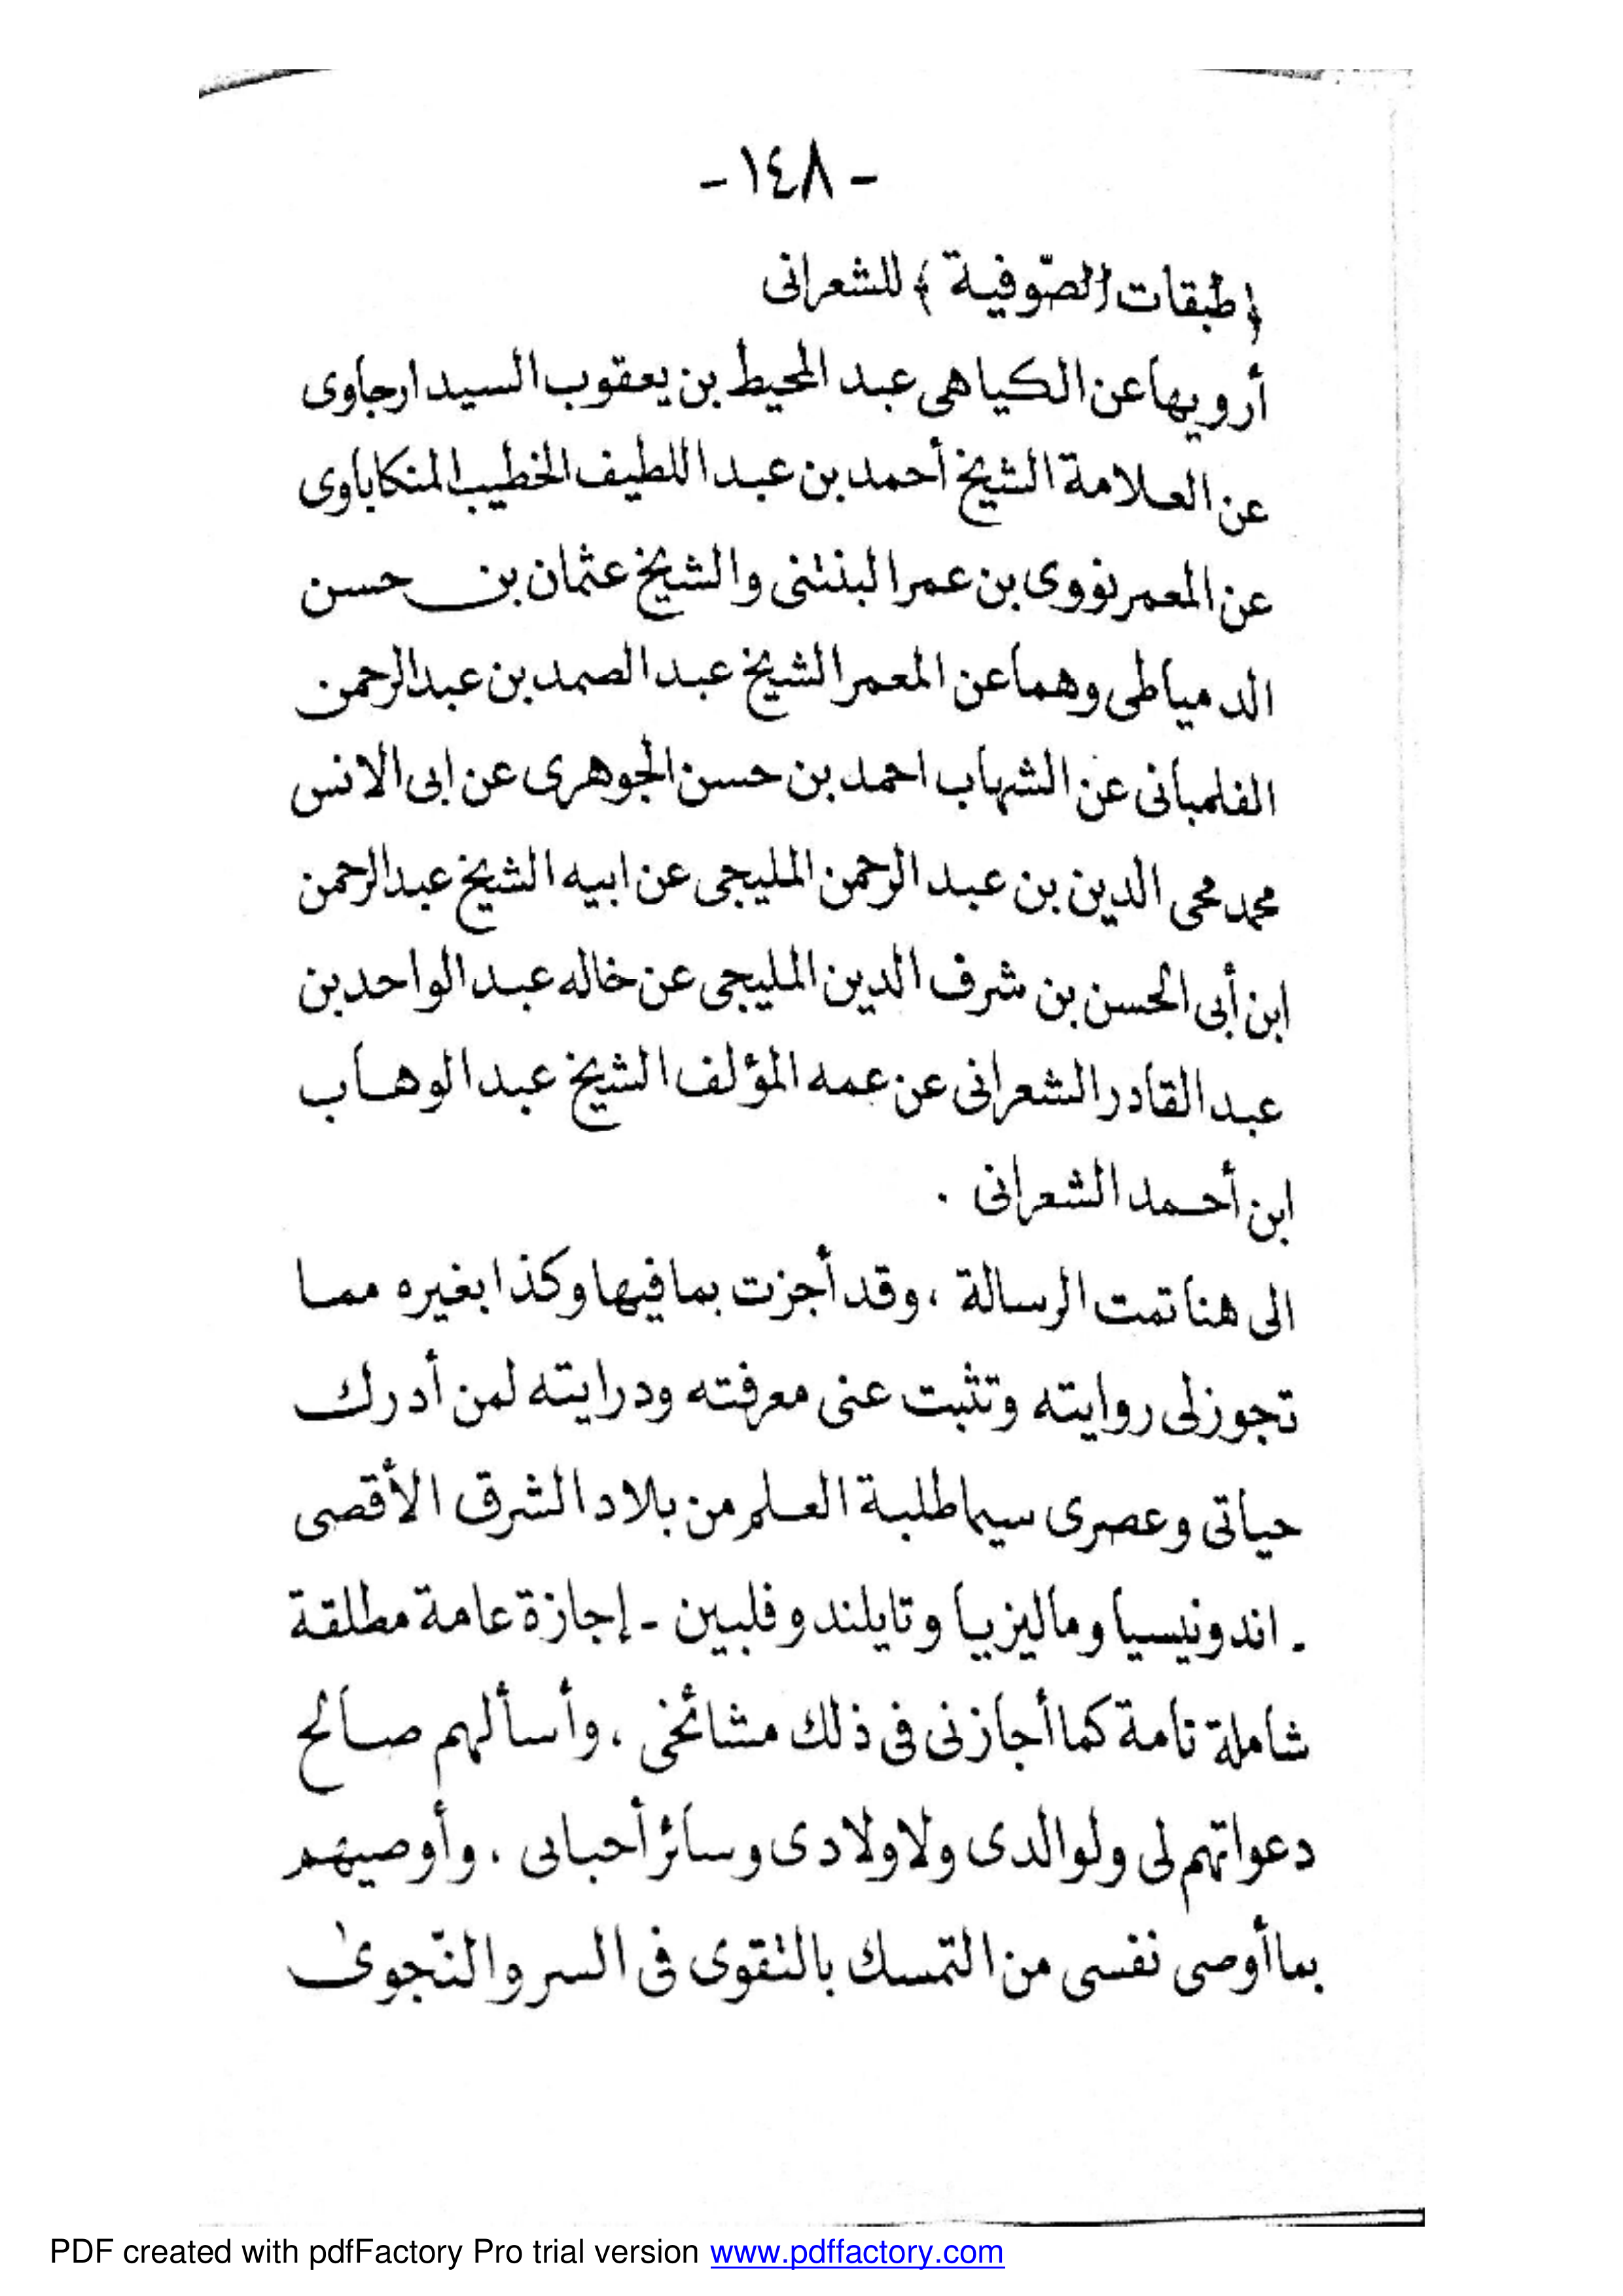 - ١٤٨ -
﴿ طبقات الصّوفية ﴾ للشعرانى
أرويها عن الكياهى عبد المحيط بن يعقوب السيدارجاوى
عن العلامة الشيخ أحمد بن عبد اللطيف الخطيب المنكاباوى
عن المعمر نووى بن عمر البنتنى والشيخ عثمان بن حسن
الدمياطى وهما عن المعمر الشيخ عبد الصمد بن عبد الرحمن
الفلمبانى عن الشهاب احمد بن حسن الجوهرى عن ابى الانس
محمد محى الدين بن عبد الرحمن المليجى عن ابيه الشيخ عبد الرحمن
ابن أبى الحسن بن شرف الدين المليجى عن خاله عبد الواحد بن
عبد القادر الشعرانى عن عمه المؤلف الشيخ عبد الوهاب
ابن أحمد الشعرانى .
الى هنا تمت الرسالة ، وقد أجزت بما فيها وكذا بغيره مما
تجوز لى روايته وتثبت عنى معرفته ودرايته لمن أدرك
حياتى وعصرى سيما طلبة العلم من بلاد الشرق الأقصى
- اندونيسيا وماليزيا وتايلند وفلبين - إجازة عامة مطلقة
شاملة تامة كما أجازنى فى ذلك مشائخى ، وأسألهم صالح
دعواتهم لى ولوالدى ولاولادى وسائر أحبابى ، وأوصيهم
بما أوصى نفسى من التمسك بالتقوى فى السر والنّجوى
PDF created with pdfFactory Pro trial version www.pdffactory.com